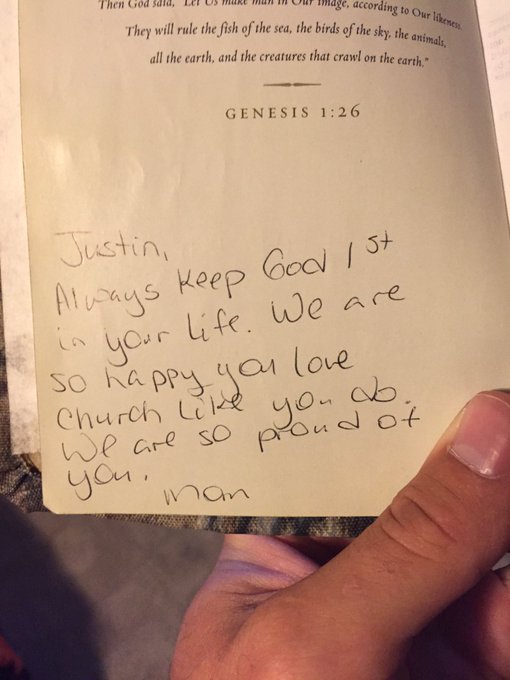 Then God said, "Let Us make man in Our image, according to Our likeness.
They will rule the fish of the sea, the birds of the sky, the animals,
all the earth, and the creatures that crawl on the earth."
GENESIS 1:26
Justin,
Always keep God 1st
in your life. We are
so happy you love
Church like you do.
We are so proud of
you.
mom